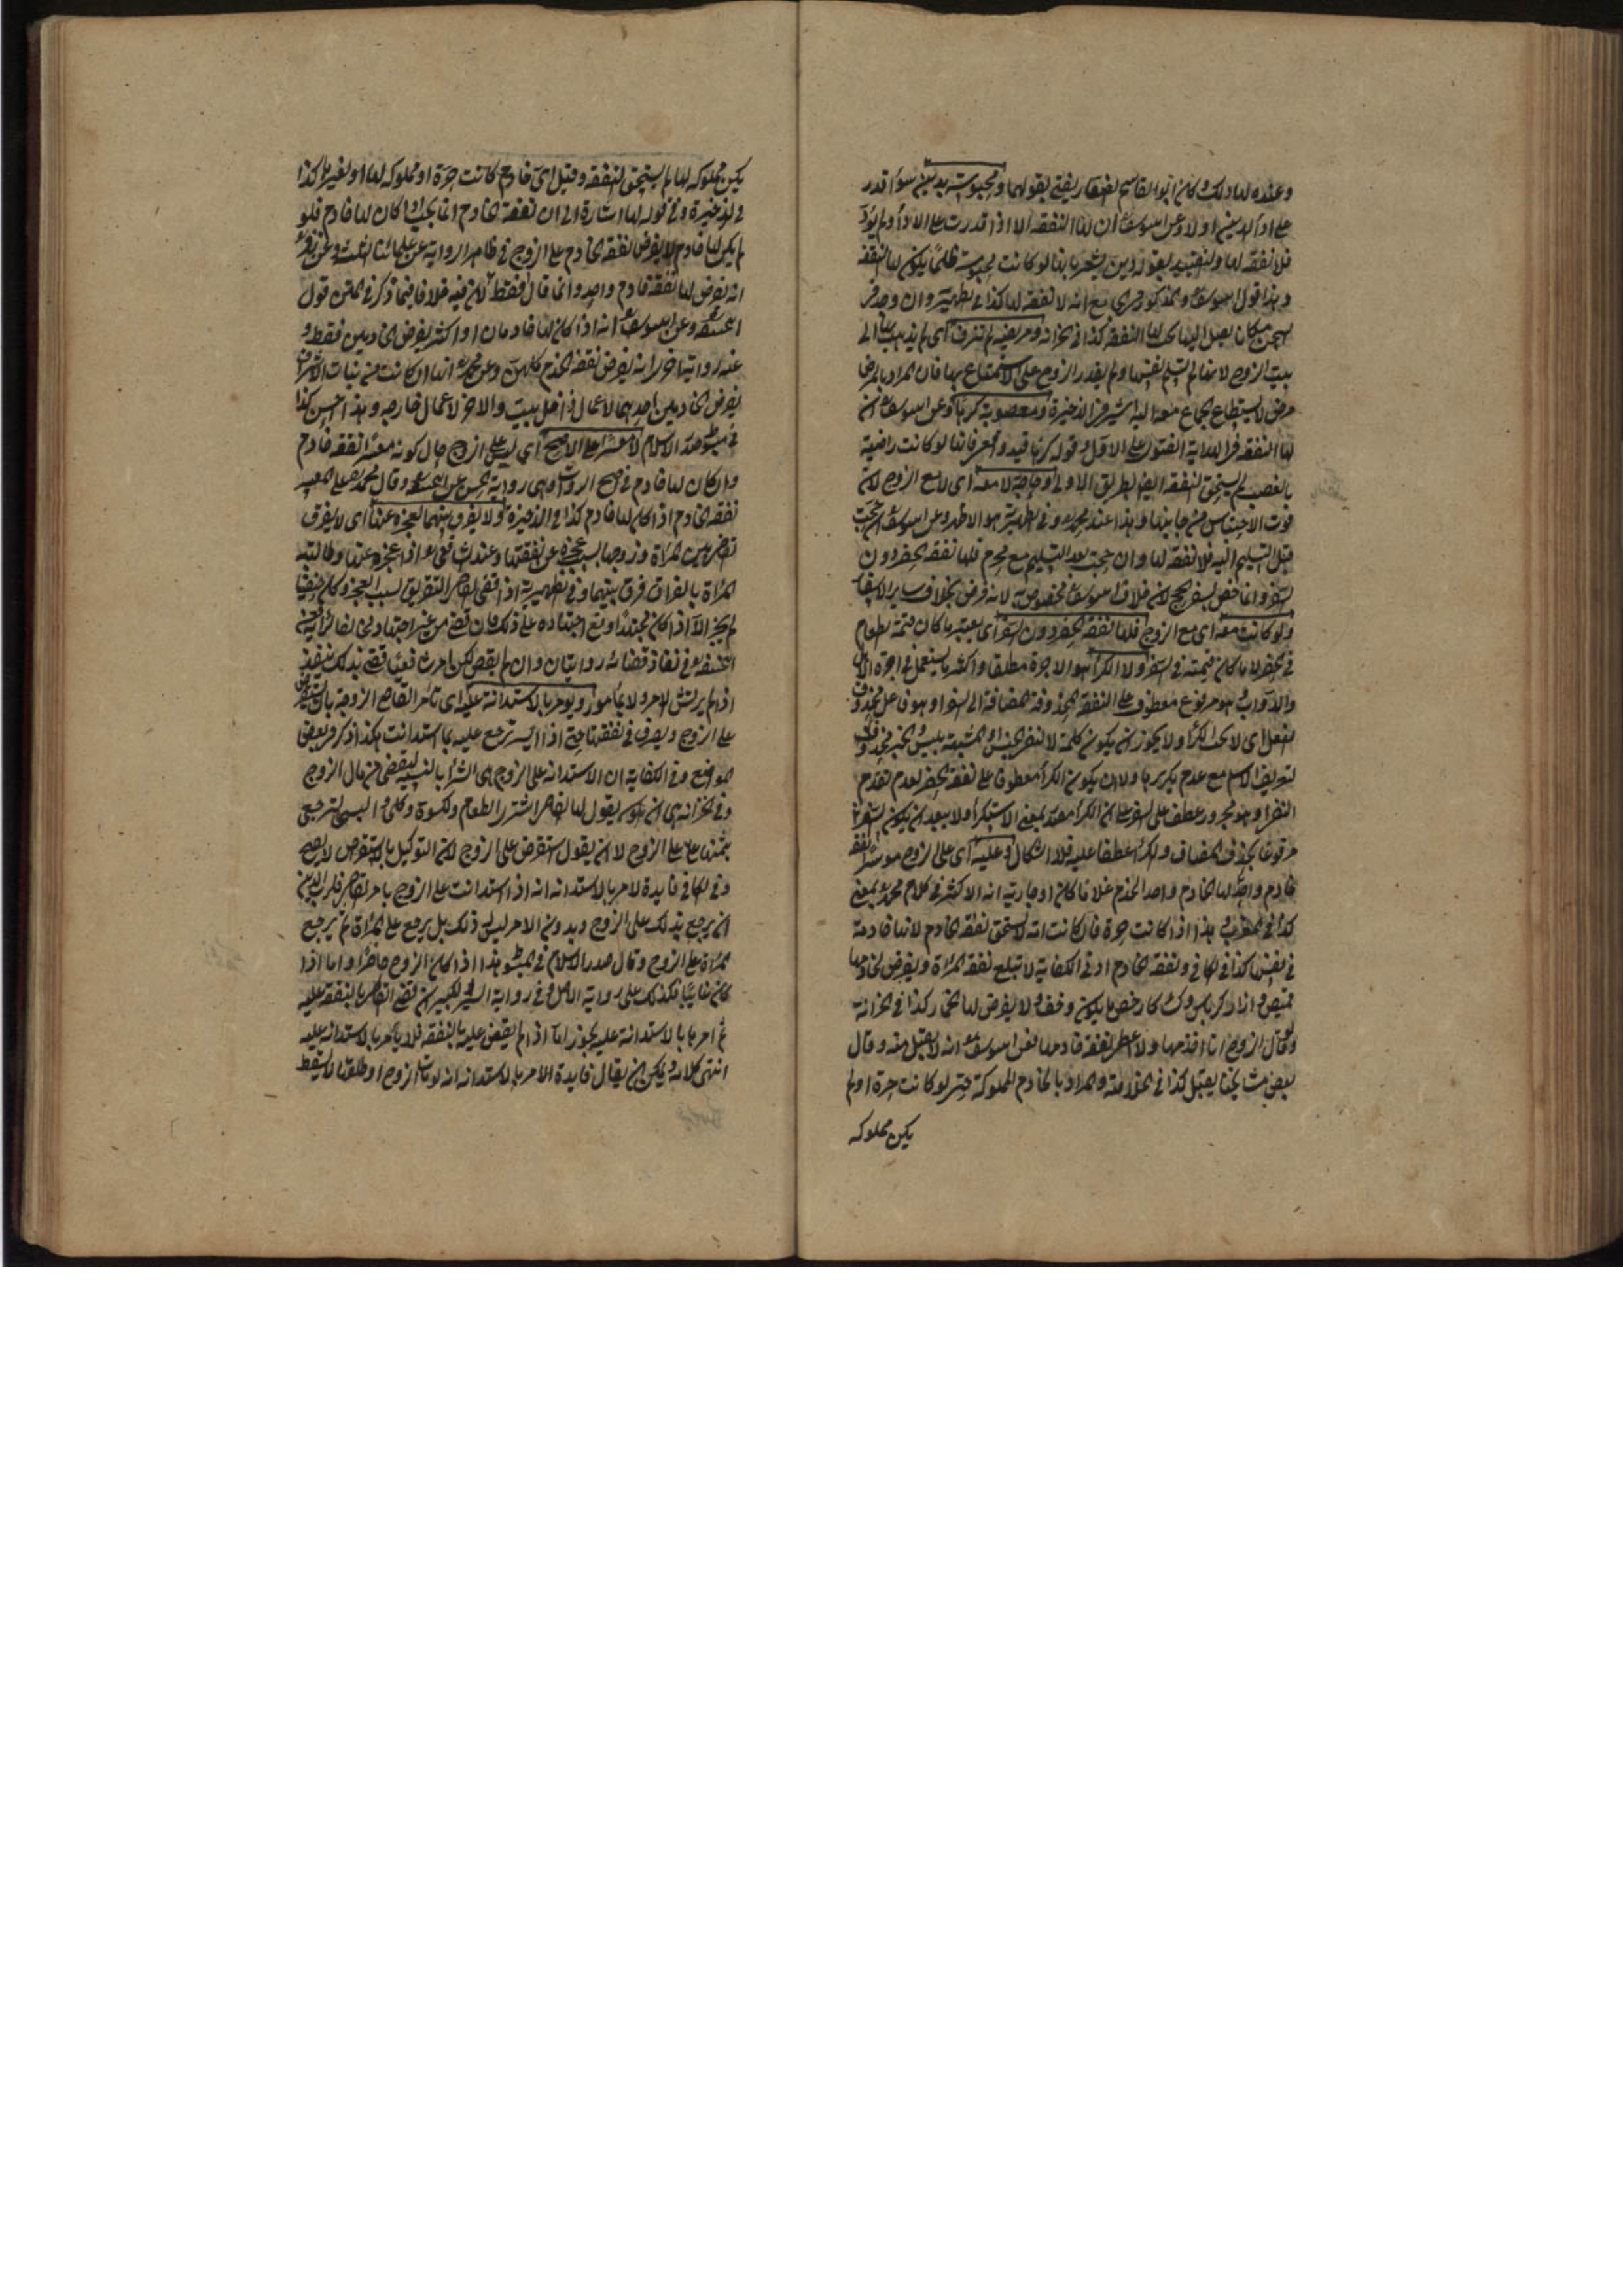 وعنده لها ذلك وكان ابو القاسم الصفار يفتى بقولهما ومحبوسة بدين سواء قدر
على اداء الدين اولا وعن ابى يوسف ان لها النفقة الا اذا قدرت على الاداء ولم يؤد
فلا نفقة لها والتقييد بقوله بدين يشعر بانها لو كانت محبوسة ظلما يكون لها النفقة
وهذا قول ابى يوسف والمذكور فى مع انه لا نفقة لها كذا فى الظهيرية وان وجد فى
السجن مكان يصل اليها يجب لها النفقة كذا فى الخزانة ومريضة لم تزف اى لم تذهب الى
بيت الزوج لانها لم تسلم نفسها ولم يقدر الزوج على الاستمتاع بها فان المراد بالمرض
مرض لا يستطاع الجماع معه اليه اشير فى الذخيرة ومغصوبة كرها وعن ابى يوسف ان
لها النفقة والفتوى على الاول وقوله كرها قيد واحترز فانها لو كانت راضية
بالغصب لم يستحق النفقة بالطريق الاولى وحاجة لا معه اى لا مع الزوج لان
فوت الاحتباس من جانبها وهذا عند محمد وفى الظهيرية هو الاظهر وعن ابى يوسف ان حجت
قبل التسليم اليه فلا نفقة لها وان حجت بعد التسليم مع محرم فلها نفقة الحضر دون
السفر وانما خص لسفر الحج لان خلاف ابى يوسف مخصوص به لانه فرض بخلاف ساير الاسفار
ولو كانت معه اى مع الزوج فلها نفقة الحضر دون السفر اى يعتبر ما كان قيمة الطعام
فى الحضر لا ما كان قيمته فى السفر ولا الكراء هو الاجرة مطلقا واكثر ما يستعمل فى اجرة الابل
والدواب وهو مرفوع معطوف على النفقة المحذوفة المضافة الى السفر او هو فاعل محذوف
الفعل اى لا يجب الكراء ولا يجوز ان يكون كلمة لا لنفى الجنس او المشبهة بليس والخبر محذوف
لتعريف الاسم مع عدم تكريرها ولا ان يكون الكراء معطوفا على نفقة الحضر لعدم تقدم
النفى او هو مجرور عطف على السفر على ان الكراء مصدر بمعنى الاستكراء ولا يبعد ان يكون السفر
مرفوعا بحذف المضاف والكراء عطفا عليه فلا اشكال وعليه اى على الزوج موسرا نفقة
خادم واحد لها الخادم واحد الخدم غلاما كان او جارية انه الاكثر فى كلام محمد بمعنى
كذا فى المغرب هذا اذا كانت حرة فان كانت امة لا تستحق نفقة الخادم لانها خادمة
فى نفسها كذا فى الكافى ونفقة الخادم ادنى الكفاية لا تبلغ نفقة المرأة ويفرض لخادمها
قميص وازار كرباس وكساء كارخص ما يكون وخف ولا يفرض لها الخمار كذا فى الخزانة
ولو قال الزوج انا اخدمها ولا اعطى نفقة خادمها فعن ابى يوسف انه لا يقبل منه وقال
بعض مشايخنا يقبل كذا فى الخلاصة والمراد بالخادم المملوكة حتى لو كانت حرة او لم
يكن مملوكه
يكن مملوكه لها لم يستحق النفقة وقيل اى خادم كانت حرة او مملوكه لها او لغيرها كذا
فى الذخيرة وفى قوله لها اشارة الى ان نفقة الخادم انما يجب اذا كان لها خادم فلو
لم يكن لها خادم لا يفرض نفقة الخادم على الزوج فى ظاهر الرواية عن علمائنا الثلثة وعن زفر
انه يفرض لها نفقة خادم واحد وانما قال فقط لان فيه خلافا فيما ذكر فى المتن قول
ابى حنيفة وعن ابى يوسف انه اذا كان لها خادمان او اكثر يفرض لخادمين فقط و
عنه رواية اخرى انه يفرض نفقة الخدم كلهن وعن محمد انها ان كانت من بنات الاشراف
يفرض لخادمين احدهما لاعمال داخل البيت والاخر لاعمال خارجه وهذا احسن كذا
فى مبسوط صدر الاسلام لا معسرا على الاصح اى ليس على الزوج حال كونه معسرا نفقة خادم
وان كان لها خادم فى اصح الروايتين وهى رواية الحسن عن ابى حنيفة وقال محمد على المعسر
نفقة الخادم اذا كان لها خادم كذا فى الذخيرة ولا يفرق بينهما لعجزه عنها اى لا يفرق
القاضى بين المرأة وزوجها بسبب عجزه عن نفقتها وعند الشافعى اذا عجز عنها وطالبته
المرأة بالفراق فرق بينهما وفى الظهيرية اذا قضى القاضى بالتفريق بسبب العجز وكان حنفيا
لم يجز الا اذا كان مجتهدا ووقع اجتهاده على ذلك فان قضى من غير اجتهاد فعن
ابى حنيفة فى نفاذ قضائه روايتان وان لم يقض لكن امر شافعيا فقضى بذلك ينفذ
اذا لم يرتش الامر ولا المأمور ويؤمر بالاستدانة عليه اى تأمر القاضى الزوجة بان تستقرض
على الزوج ويصرف فى نفقتها حتى اذا ايسر ترجع عليه بما استدانت هكذا ذكر فى بعض
المواضع وفى الكفاية ان الاستدانة على الزوج هى الشراء بالنسيئة ليقضى من مال الزوج
وفى الخزانة هى ان يقول لها القاضى اشترى الطعام والكسوة وكلى والبسى لترجعى
بثمنها على الزوج لا ان يقول استقرضى على الزوج لان التوكيل بالاستقراض لا يصح
وفى الكافى فايدة الامر بالاستدانة انه اذا استدانت على الزوج بامر القاضى فلرب الدين
ان يرجع بذلك على الزوج وبدون الامر ليس ذلك بل يرجع على المرأة ثم يرجع
المرأة على الزوج وقال صدر الاسلام فى المبسوط هذا اذا كان الزوج حاضرا واما اذا
كان غائبا فكذلك على رواية الاصل وفى رواية السير الكبير ان قضى القاضى بالنفقة عليه
ثم امرها بالاستدانة عليه يجوز اما اذا لم يقض عليه بالنفقة فلا يأمرها بالاستدانة عليه
انتهى كلامه ويمكن ان يقال فايدة الامر بالاستدانة انه لو مات الزوج او طلقها لا يسقط